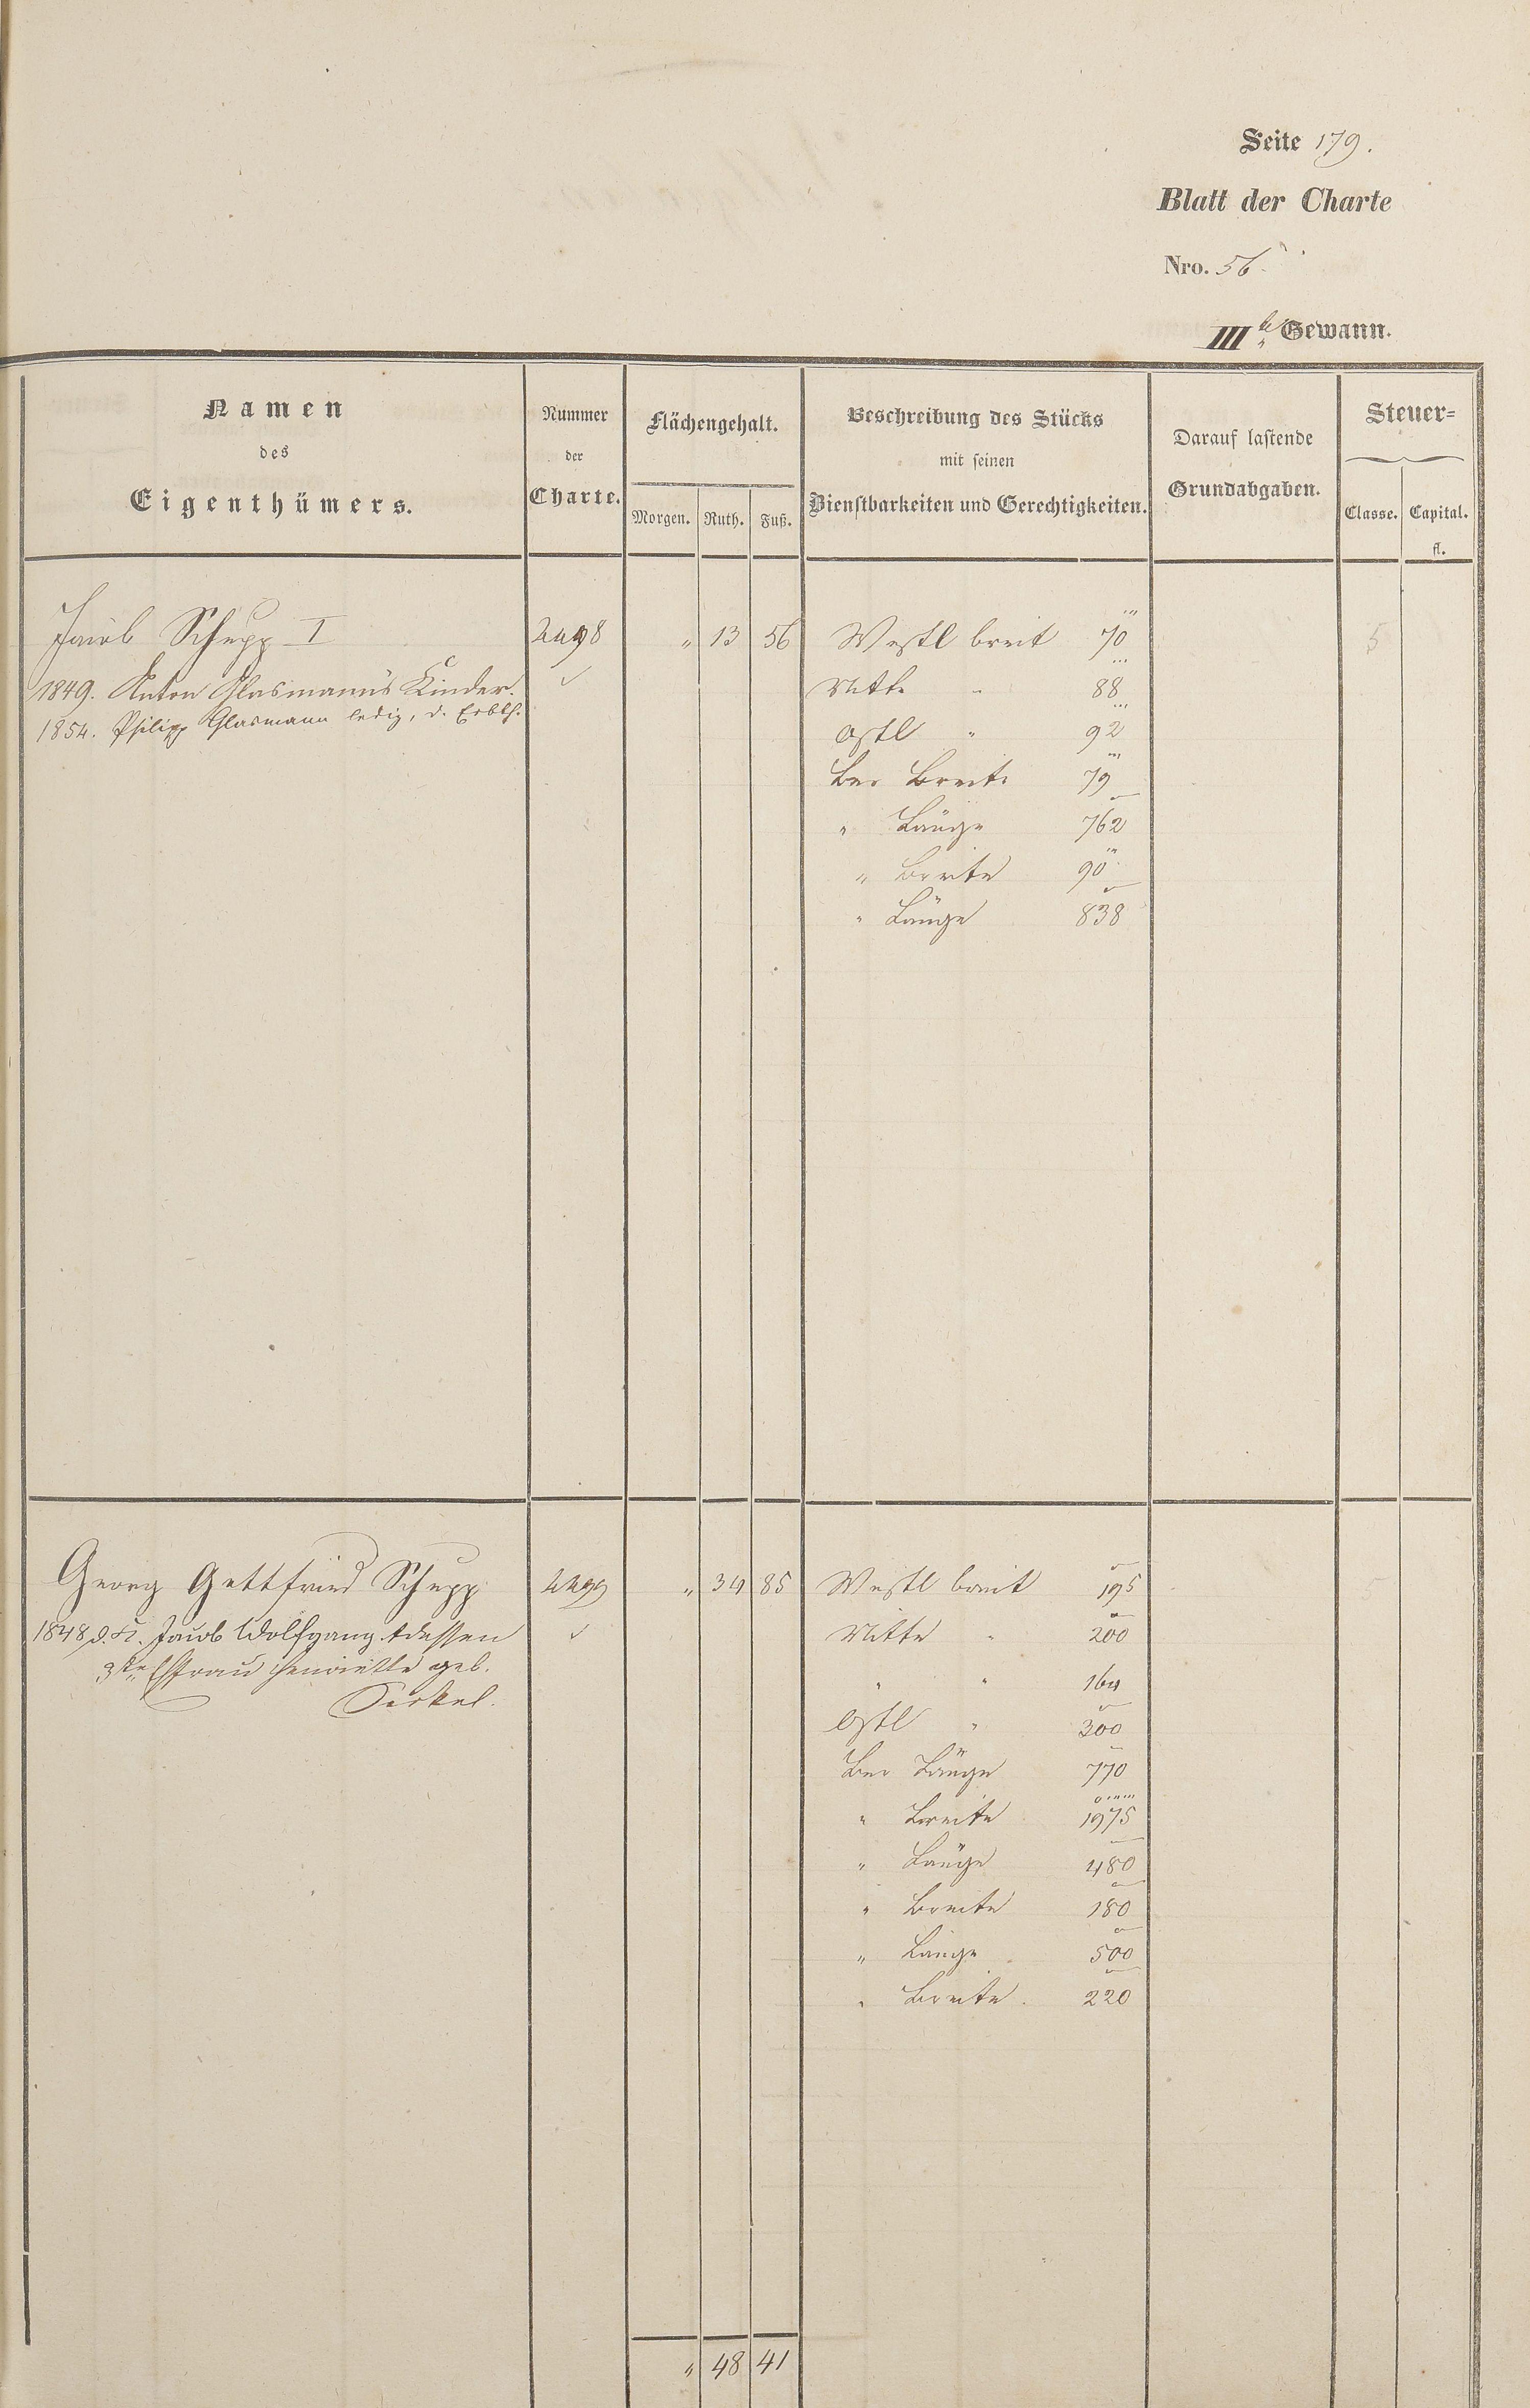 Seite 179.
Blatt der Charte
Nro. 56.
III te Gewann.
Namen des Eigenthümers.
Nummer der Charte.
Flächengehalt.
Morgen. Ruth. Fuß.
Beschreibung des Stücks mit seinen Dienstbarkeiten und Gerechtigkeiten.
Darauf lastende Grundabgaben.
Steuer=
Classe. Capital. fl.
Jacob Schupp I 2498 " 13 56 Westl breit 70''' 5
1849. Anton Glasmann's Kinder. Mitte " 88'''
1854. Philipp Glasmann ledig, d. Erbth. Ostl " 92'''
Ber Breite 79'''
" Länge 762
" Breite 90'''
" Länge 838
Georg Gottfried Schupp 2499 " 34 85 Westl breit 195 5
1848 d. K. Jacob Wolfgang & dessen Mitte " 200
3te Ehfrau Henriette geb. " " 164
Serkel. Ostl " 300
Ber Länge 770
" Breite 1975
" Länge 480
" Breite 180
" Länge 500
" Breite. 220
" 48 41